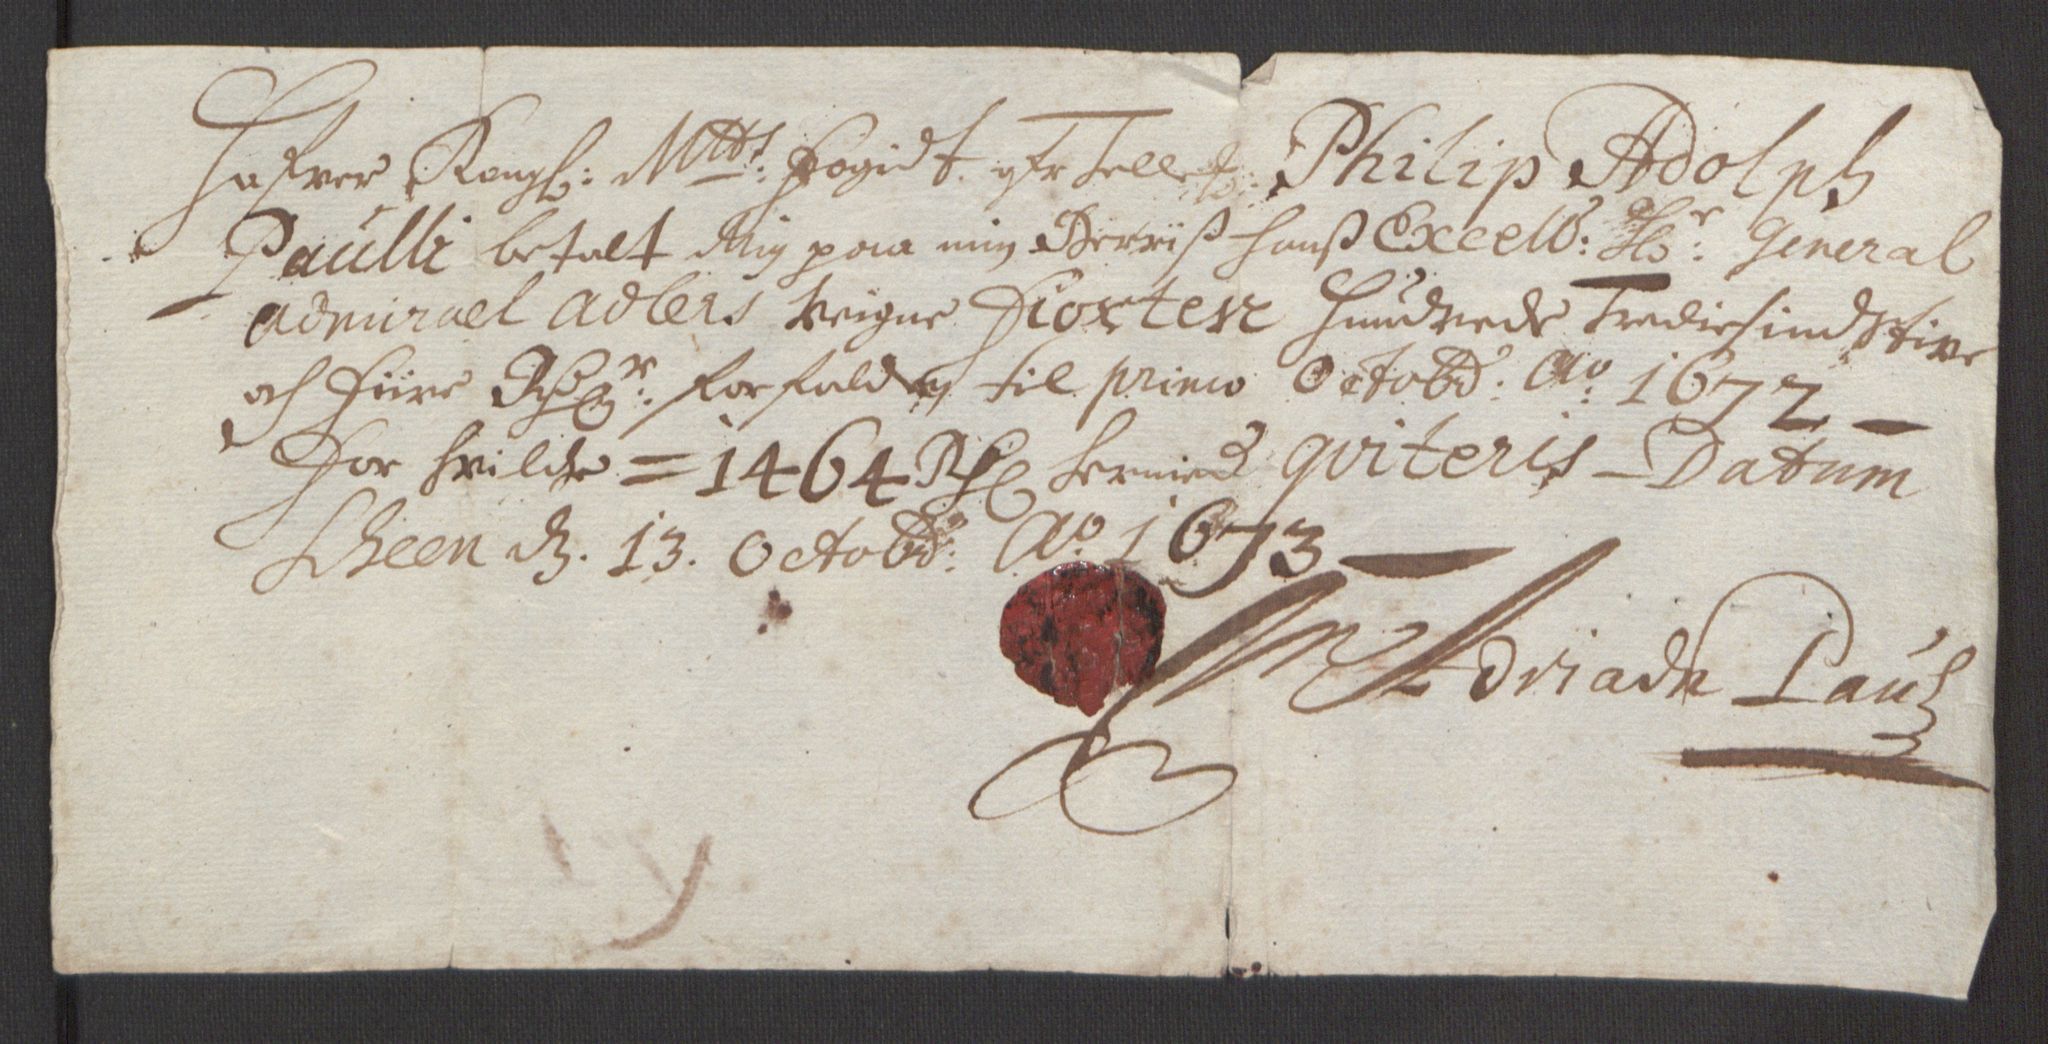 Hafver Kongl: Mtts: Fogidt Philip Adolph
Paulli betalt Mig paa min Herris Hans Excell: Hr: General
Admirael Adlers Veigne Fiorten Hundrede Trediesindstive
och Fiire Rdr: forfalden til primo Octobr: Ao: 1672 –
For hvilke = 1464 Rd hermed qviteris – Datum
Scheen d. 13. Octobr: Ao 1673 –
Adriadn Pauls